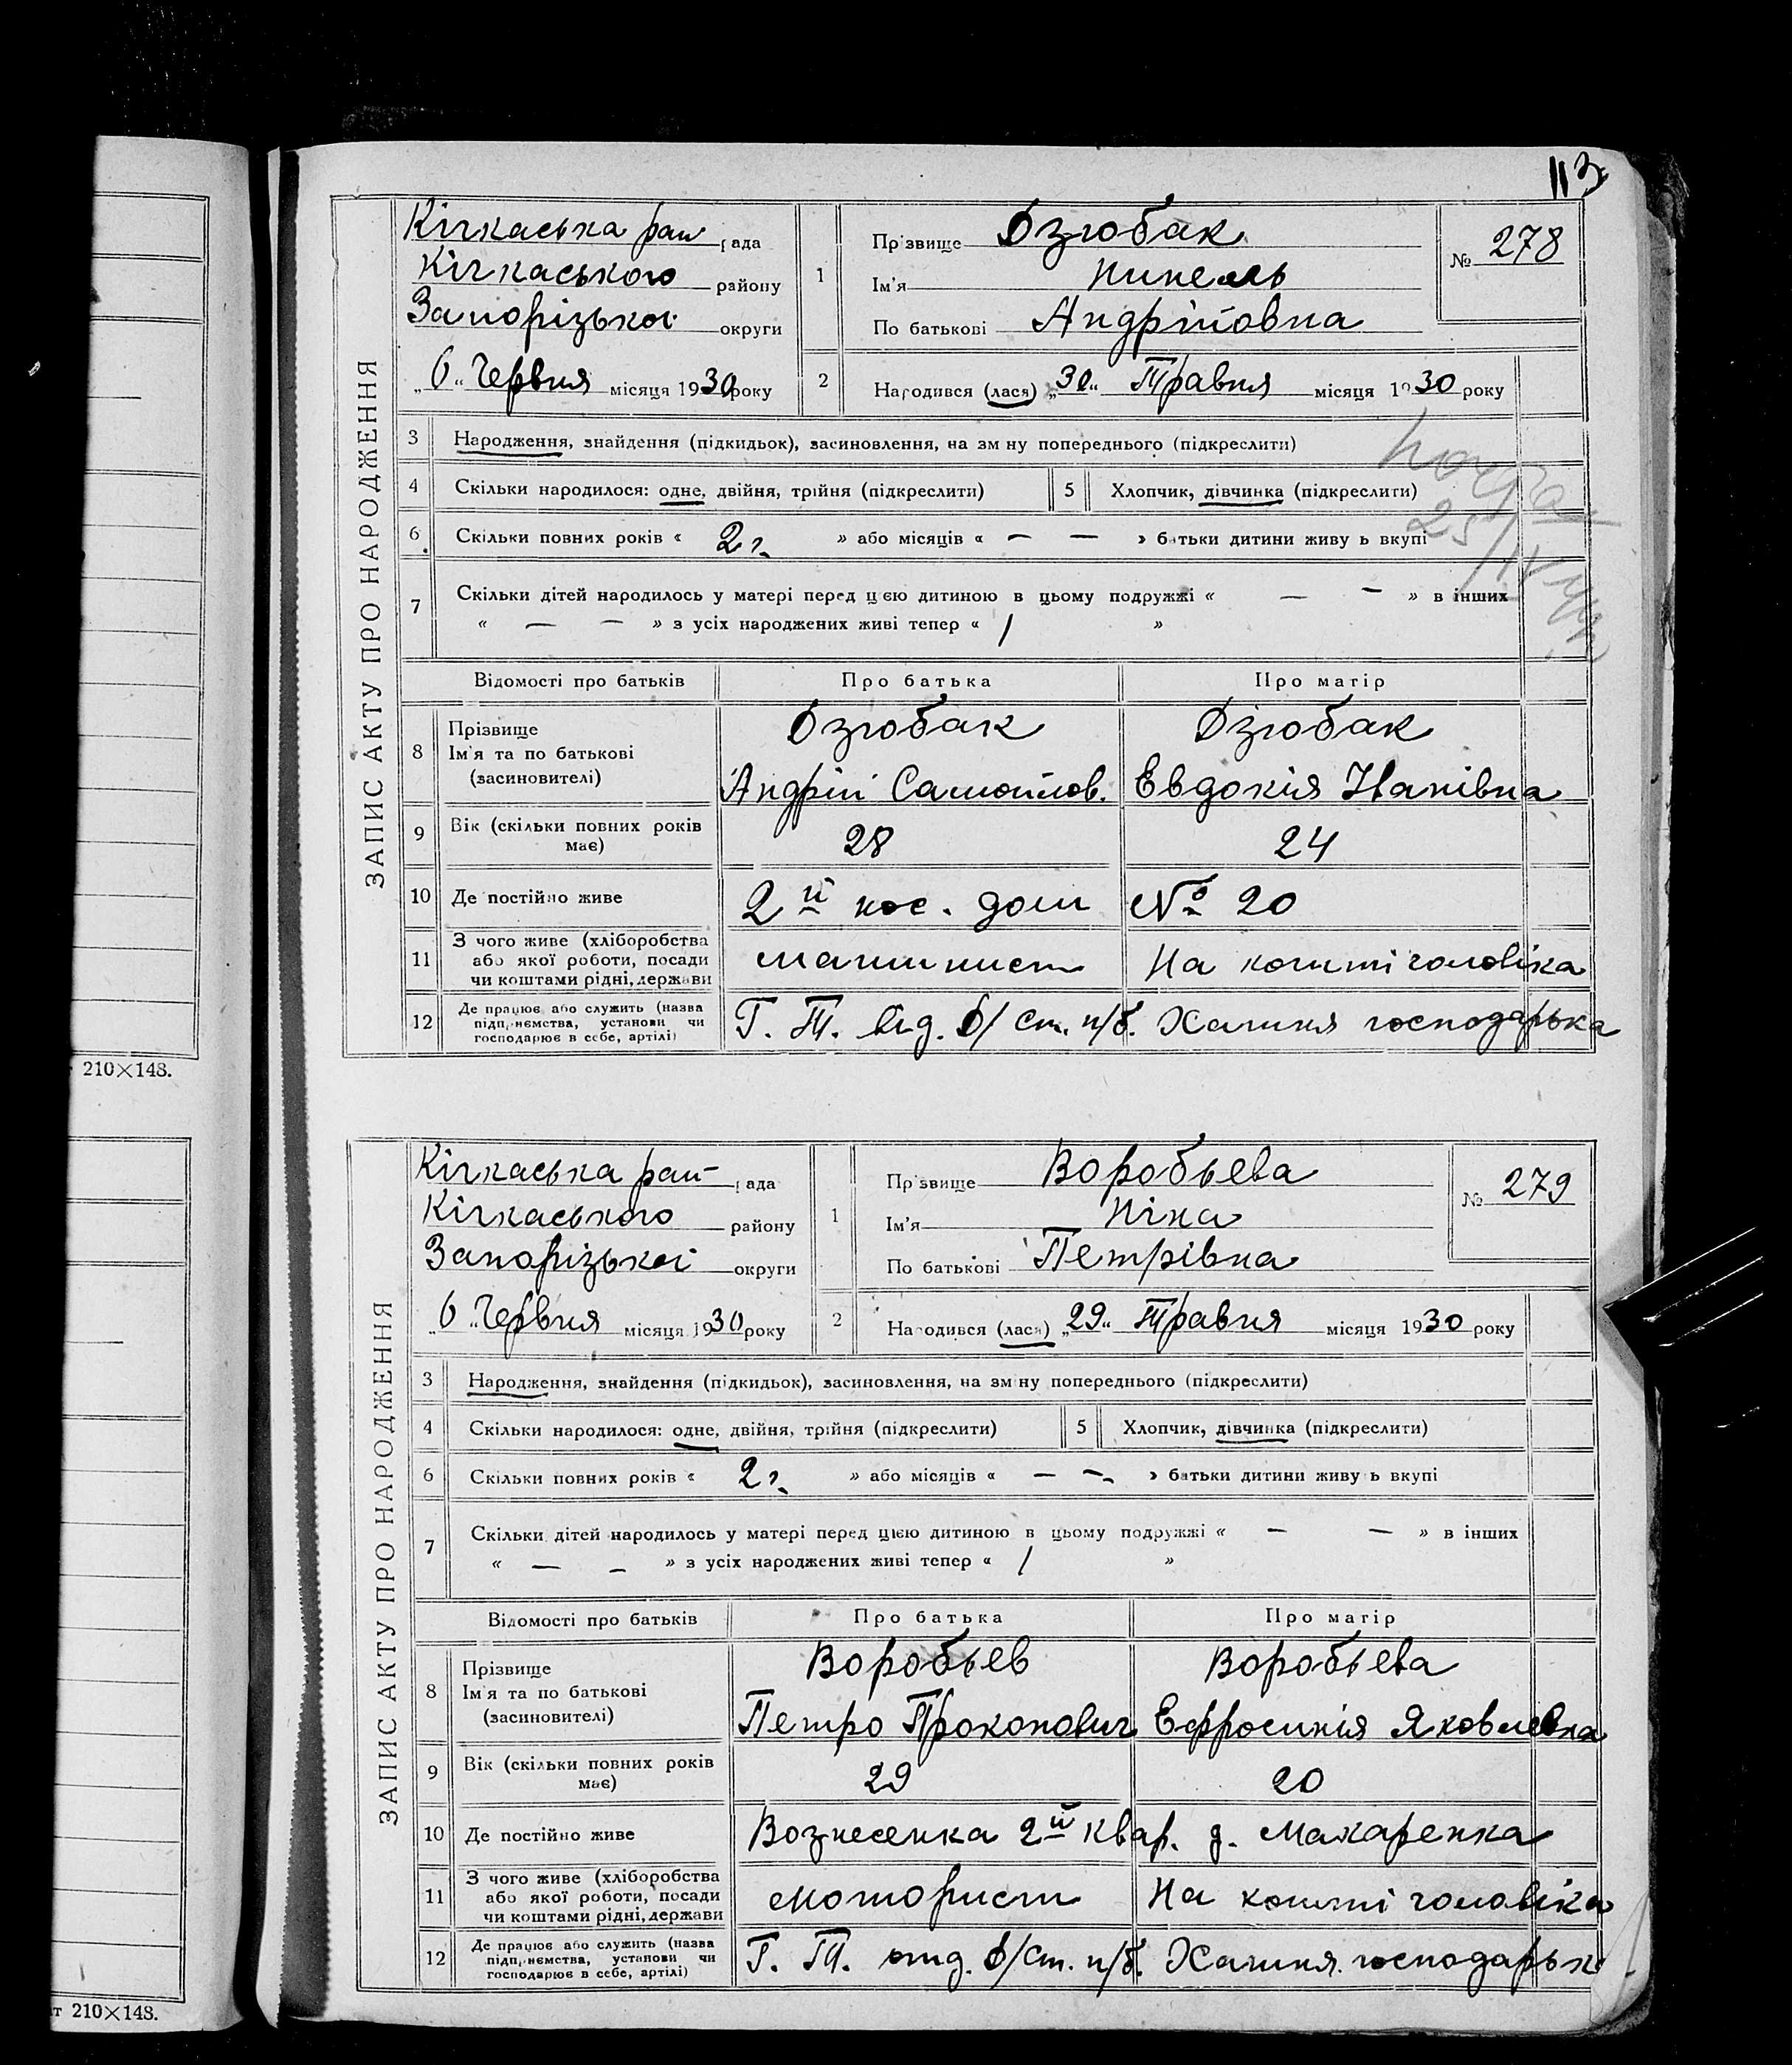 113
ЗАПИС АКТУ ПРО НАРОДЖЕННЯ
Кічкаська рай рада
Кічкаського району
Запорізької округи
„6" Червня місяця 1930 року
1
Прізвище Дзюбак
Ім'я Нинель
По батькові Андрійовна
№ 278
2 Народився (лася) „30" Травня місяця 1930 року
3 Народження, знайдення (підкидьок), засиновлення, на зміну попереднього (підкреслити)
4 Скільки народилося: одне, двійня, трійня (підкреслити) 5 Хлопчик, дівчинка (підкреслити)
6 Скільки повних років « 2 г. » або місяців « — — » батьки дитини живуть вкупі
7 Скільки дітей народилось у матері перед цією дитиною в цьому подружжі « — — » в інших
« — — » з усіх народжених живі тепер « 1 »
Відомості про батьків Про батька Про матір
8 Прізвище Ім'я та по батькові (засиновителі)
Дзюбак Дзюбак
Андрій Самойлов. Евдокія Іванівна
9 Вік (скільки повних років має) 28 24
10 Де постійно живе 2й пос. дом № 20
11 З чого живе (хліборобства або якої роботи, посади чи коштами рідні, держави машинист На кошті чоловіка
12 Де працює або служить (назва підприємства, установи чи господарює в себе, артілі) Г. Т. від. б/ст. п/б. Хатня господарька
210×148.
ЗАПИС АКТУ ПРО НАРОДЖЕННЯ
Кічкаська рай рада
Кічкаського району
Запорізької округи
„6" Червня місяця 1930 року
1
Прізвище Воробьева
Ім'я Ніна
По батькові Петрівна
№ 279
2 Народився (лася) „29" Травня місяця 1930 року
3 Народження, знайдення (підкидьок), засиновлення, на зміну попереднього (підкреслити)
4 Скільки народилося: одне, двійня, трійня (підкреслити) 5 Хлопчик, дівчинка (підкреслити)
6 Скільки повних років « 2 г. » або місяців « — — » батьки дитини живуть вкупі
7 Скільки дітей народилось у матері перед цією дитиною в цьому подружжі « — — » в інших
« — — » з усіх народжених живі тепер « 1 »
Відомості про батьків Про батька Про матір
8 Прізвище Ім'я та по батькові (засиновителі)
Воробьев Воробьева
Петро Прокопович Ефросинія Яковлевна
9 Вік (скільки повних років має) 29 20
10 Де постійно живе Вознесенка 2й квар. д. Макаренка
11 З чого живе (хліборобства або якої роботи, посади чи коштами рідні, держави моторист На кошті чоловіка
12 Де працює або служить (назва підприємства, установи чи господарює в себе, артілі) Г. Т. отд. б/ст. п/б. Хатня господарьк
т 210×148.